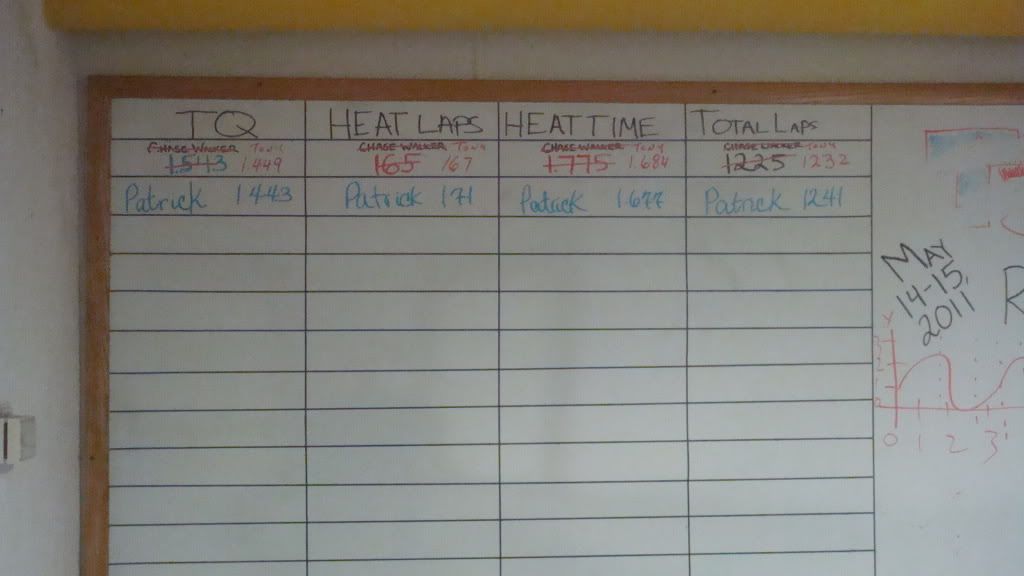 TQ HEAT LAPS HEAT TIME TOTAL LAPS
CHASE WALKER TONY CHASE WALKER TONY CHASE WALKER TONY CHASE WALKER TONY
1.543 1.449 165 167 1.775 1.684 1225 1232
Patrick 1.443 Patrick 171 Patrick 1.677 Patrick 1241
MAY
14-15,
2011
R
X
0 1 2 3